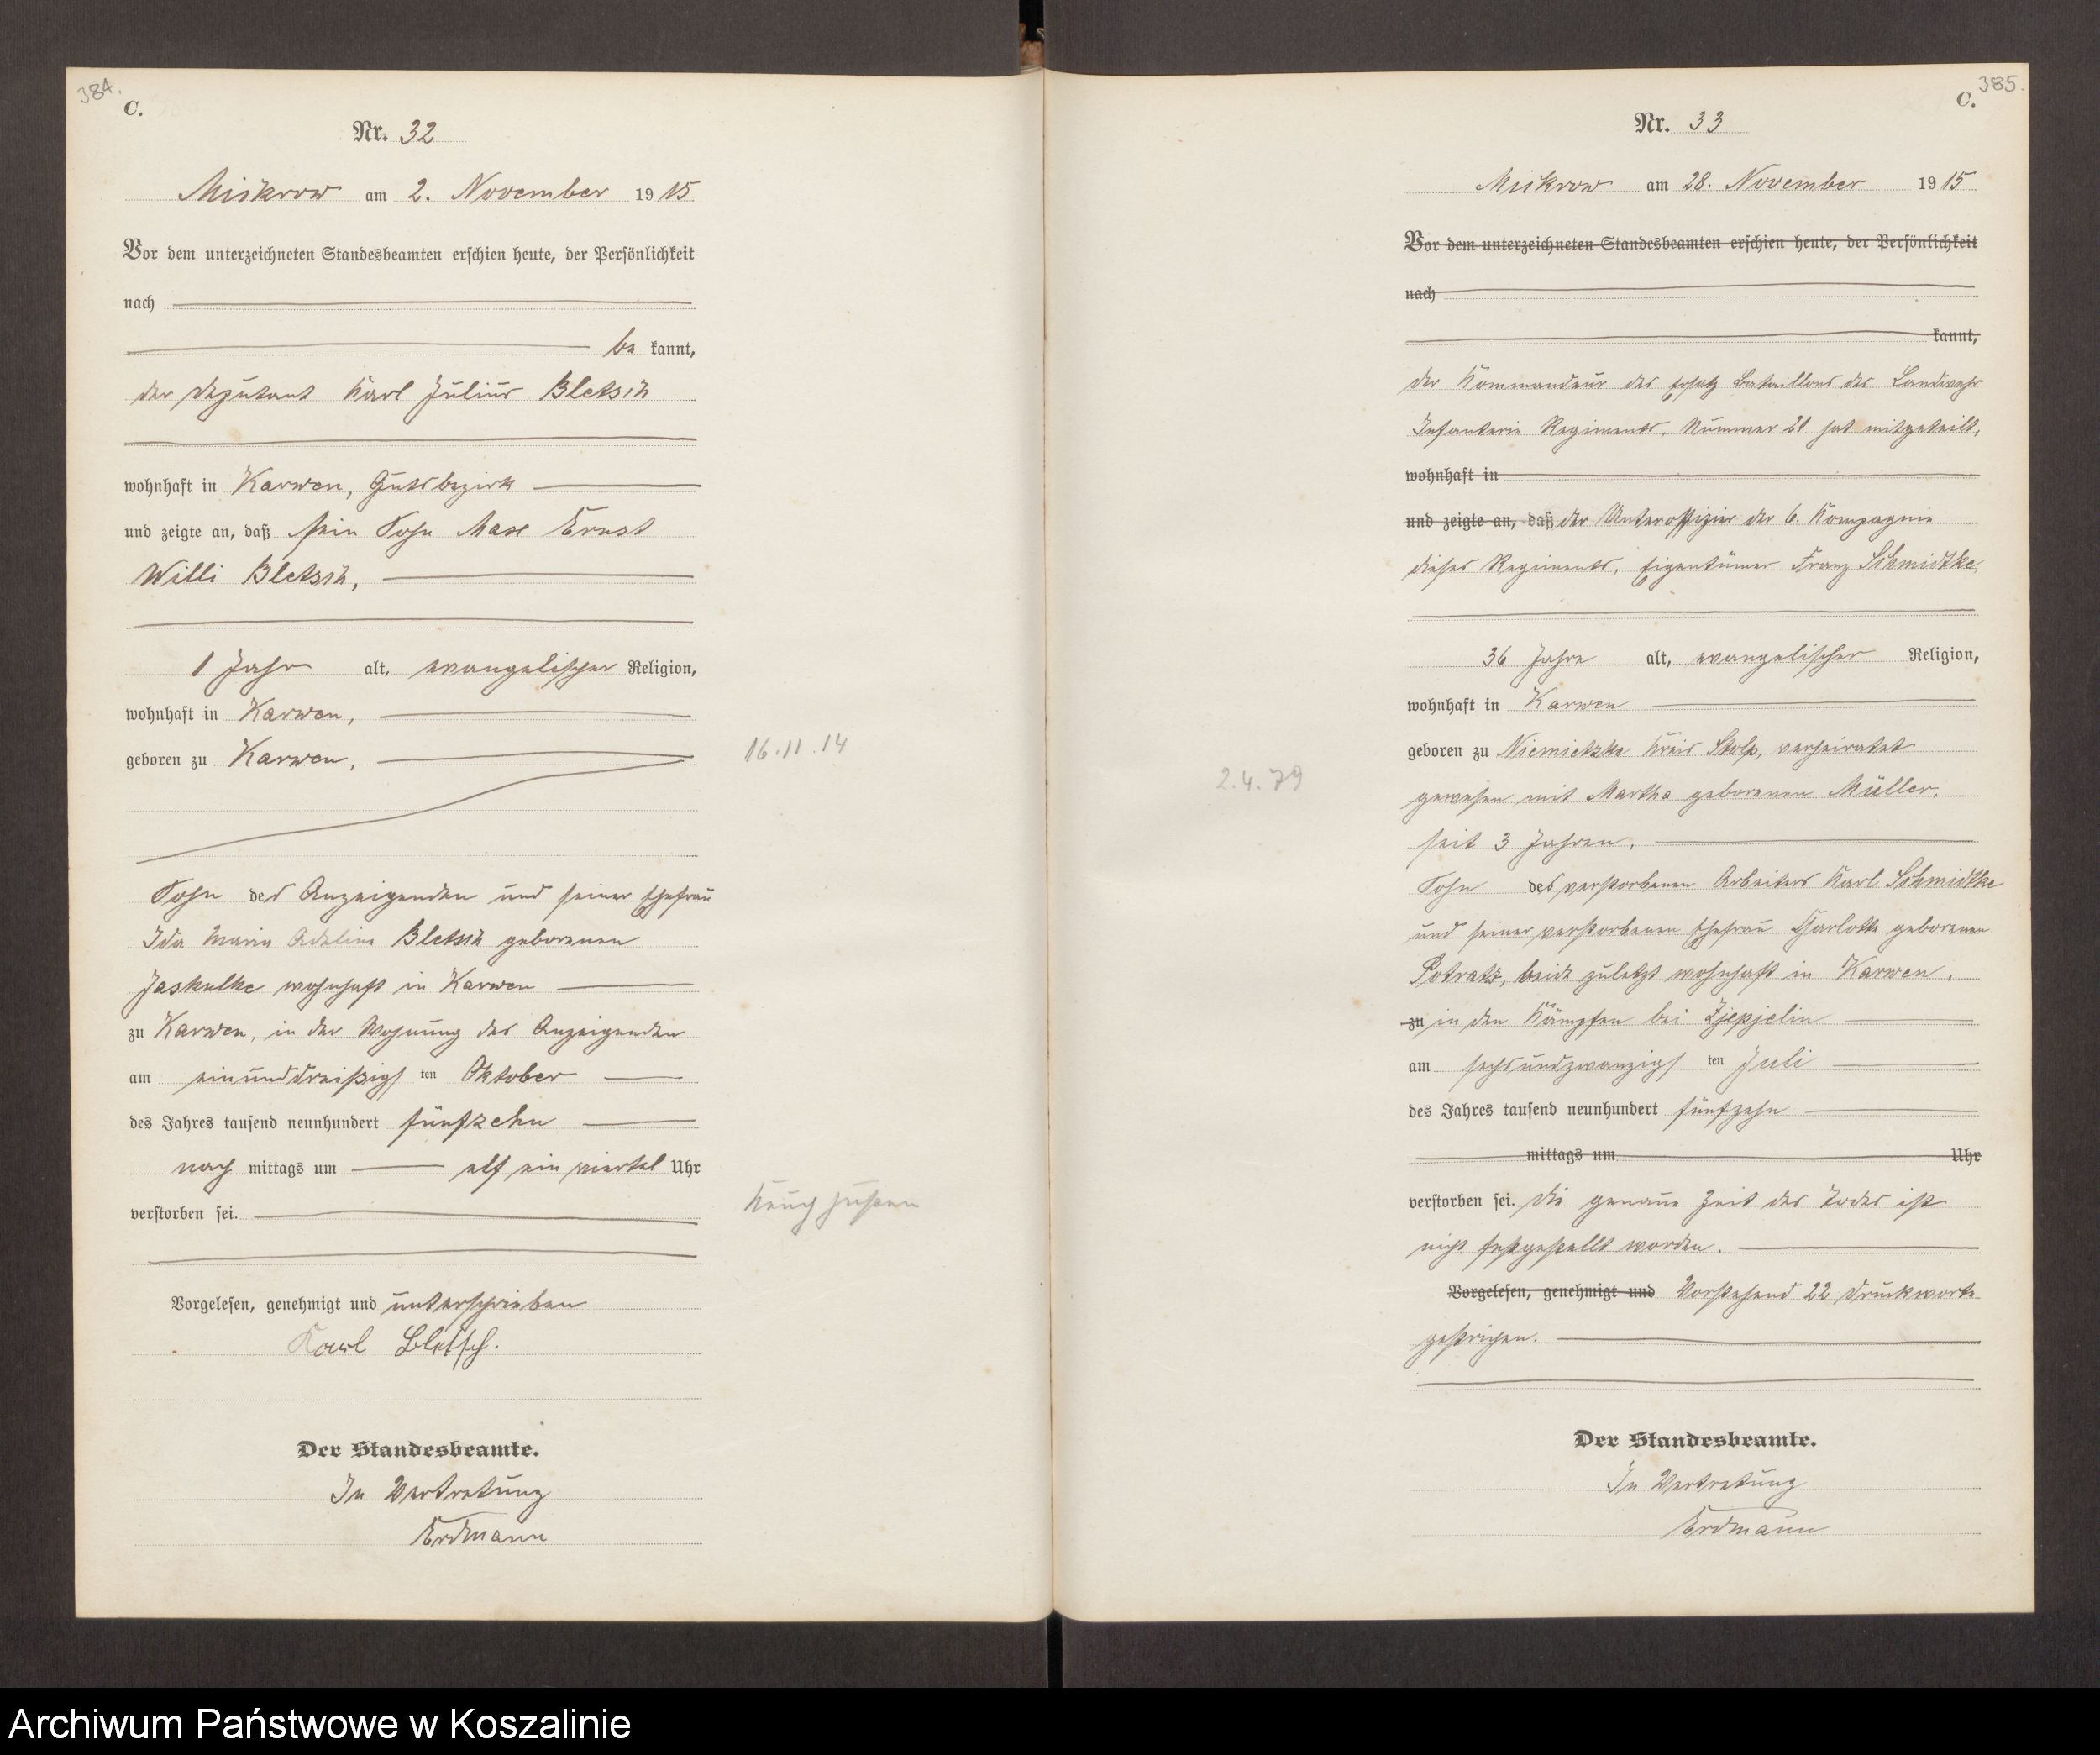 384.
C.
Nr. 32
Mickrow am 2. November 1915
Vor dem unterzeichneten Standesbeamten erschien heute, der Persönlichkeit
nach
be kannt,
der Deputant Karl Julius Bletsch
wohnhaft in Karwen, Gutsbezirk
und zeigte an, daß sein Sohn Max Ernst
Willi Bletsch,
1 Jahr alt, evangelischer Religion,
wohnhaft in Karwen,
geboren zu Karwen,
16.11.14
Sohn des Anzeigenden und seiner Ehefrau
Ida Maria Adeline Bletsch geborenen
Jaskulke wohnhaft in Karwen
zu Karwen, in der Wohnung des Anzeigenden
am einunddreißigsten Oktober
des Jahres tausend neunhundert fünfzehn
nach mittags um elf ein viertel Uhr
verstorben sei.
Keuchhusten
Vorgelesen, genehmigt und unterschrieben
Karl Bletsch.
Der Standesbeamte.
In Vertretung
Erdmann
385.
C.
Nr. 33
Mickrow am 28. November 1915
Vor dem unterzeichneten Standesbeamten erschien heute, der Persönlichkeit
nach
kannt,
der Kommandeur des Ersatz Bataillons des Landwehr
Infanterie Regiments, Nummer 21 hat mitgeteilt,
wohnhaft in
und zeigte an, daß der Unteroffizier der 6. Kompagnie
dieses Regiments, Eigentümer Franz Schmidtke
36 Jahre alt, evangelischer Religion,
wohnhaft in Karwen
geboren zu Niemietzke Kreis Stolp, verheiratet
2.4.79
gewesen mit Martha geborenen Müller,
seit 3 Jahren,
Sohn des verstorbenen Arbeiters Karl Schmidtke
und seiner verstorbenen Ehefrau Charlotte geborenen
Potratz, beide zuletzt wohnhaft in Karwen,
zu in den Kämpfen bei Zjepjelin
am sechsundzwanzigsten Juli
des Jahres tausend neunhundert fünfzehn
mittags um Uhr
verstorben sei. Die genaue Zeit des Todes ist
nicht festgestellt worden.
Vorgelesen, genehmigt und Vorstehend 22 Druckworte
gestrichen.
Der Standesbeamte.
In Vertretung
Erdmann
Archiwum Państwowe w Koszalinie